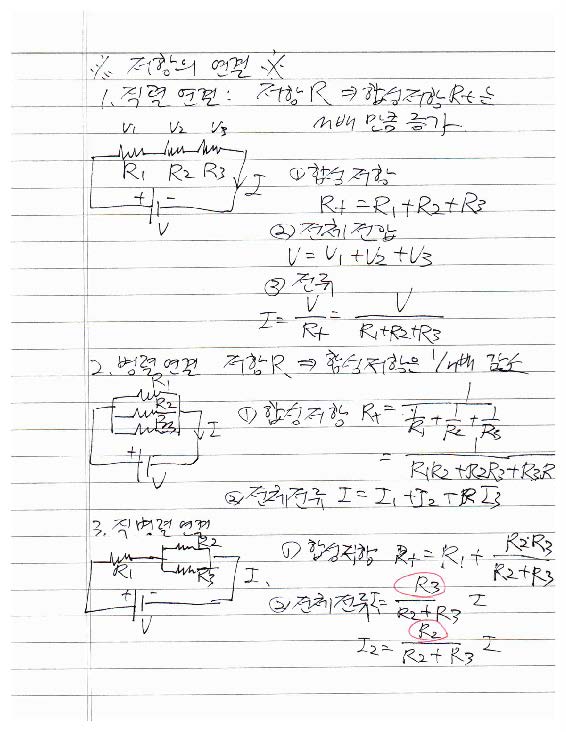 ※ 저항의 연결 ※
1. 직렬 연결 : 저항 R ⇒ 합성저항 Rt는
n배 만큼 증가
V1 V2 V3
R1 R2 R3
I
+ -
V
① 합성저항
Rt = R1 + R2 + R3
② 전체 전압
V = V1 + V2 + V3
③ 전류
I = V/Rt = V/(R1+R2+R3)
2. 병렬 연결 저항 R ⇒ 합성저항은 1/n배 감소
R1
R2
R3
I
+ -
V
① 합성저항 Rt = 1/(1/R1 + 1/R2 + 1/R3)
= 1/(R1R2 + R2R3 + R3R
② 전체전류 I = I1 + I2 + I3
3. 직병렬 연결
R2
R1
R3
I
+ -
V
① 합성저항 Rt = R1 + R2·R3/(R2+R3)
② 전체 전류 I = R3/(R2+R3) I
I2 = R2/(R2+R3) I